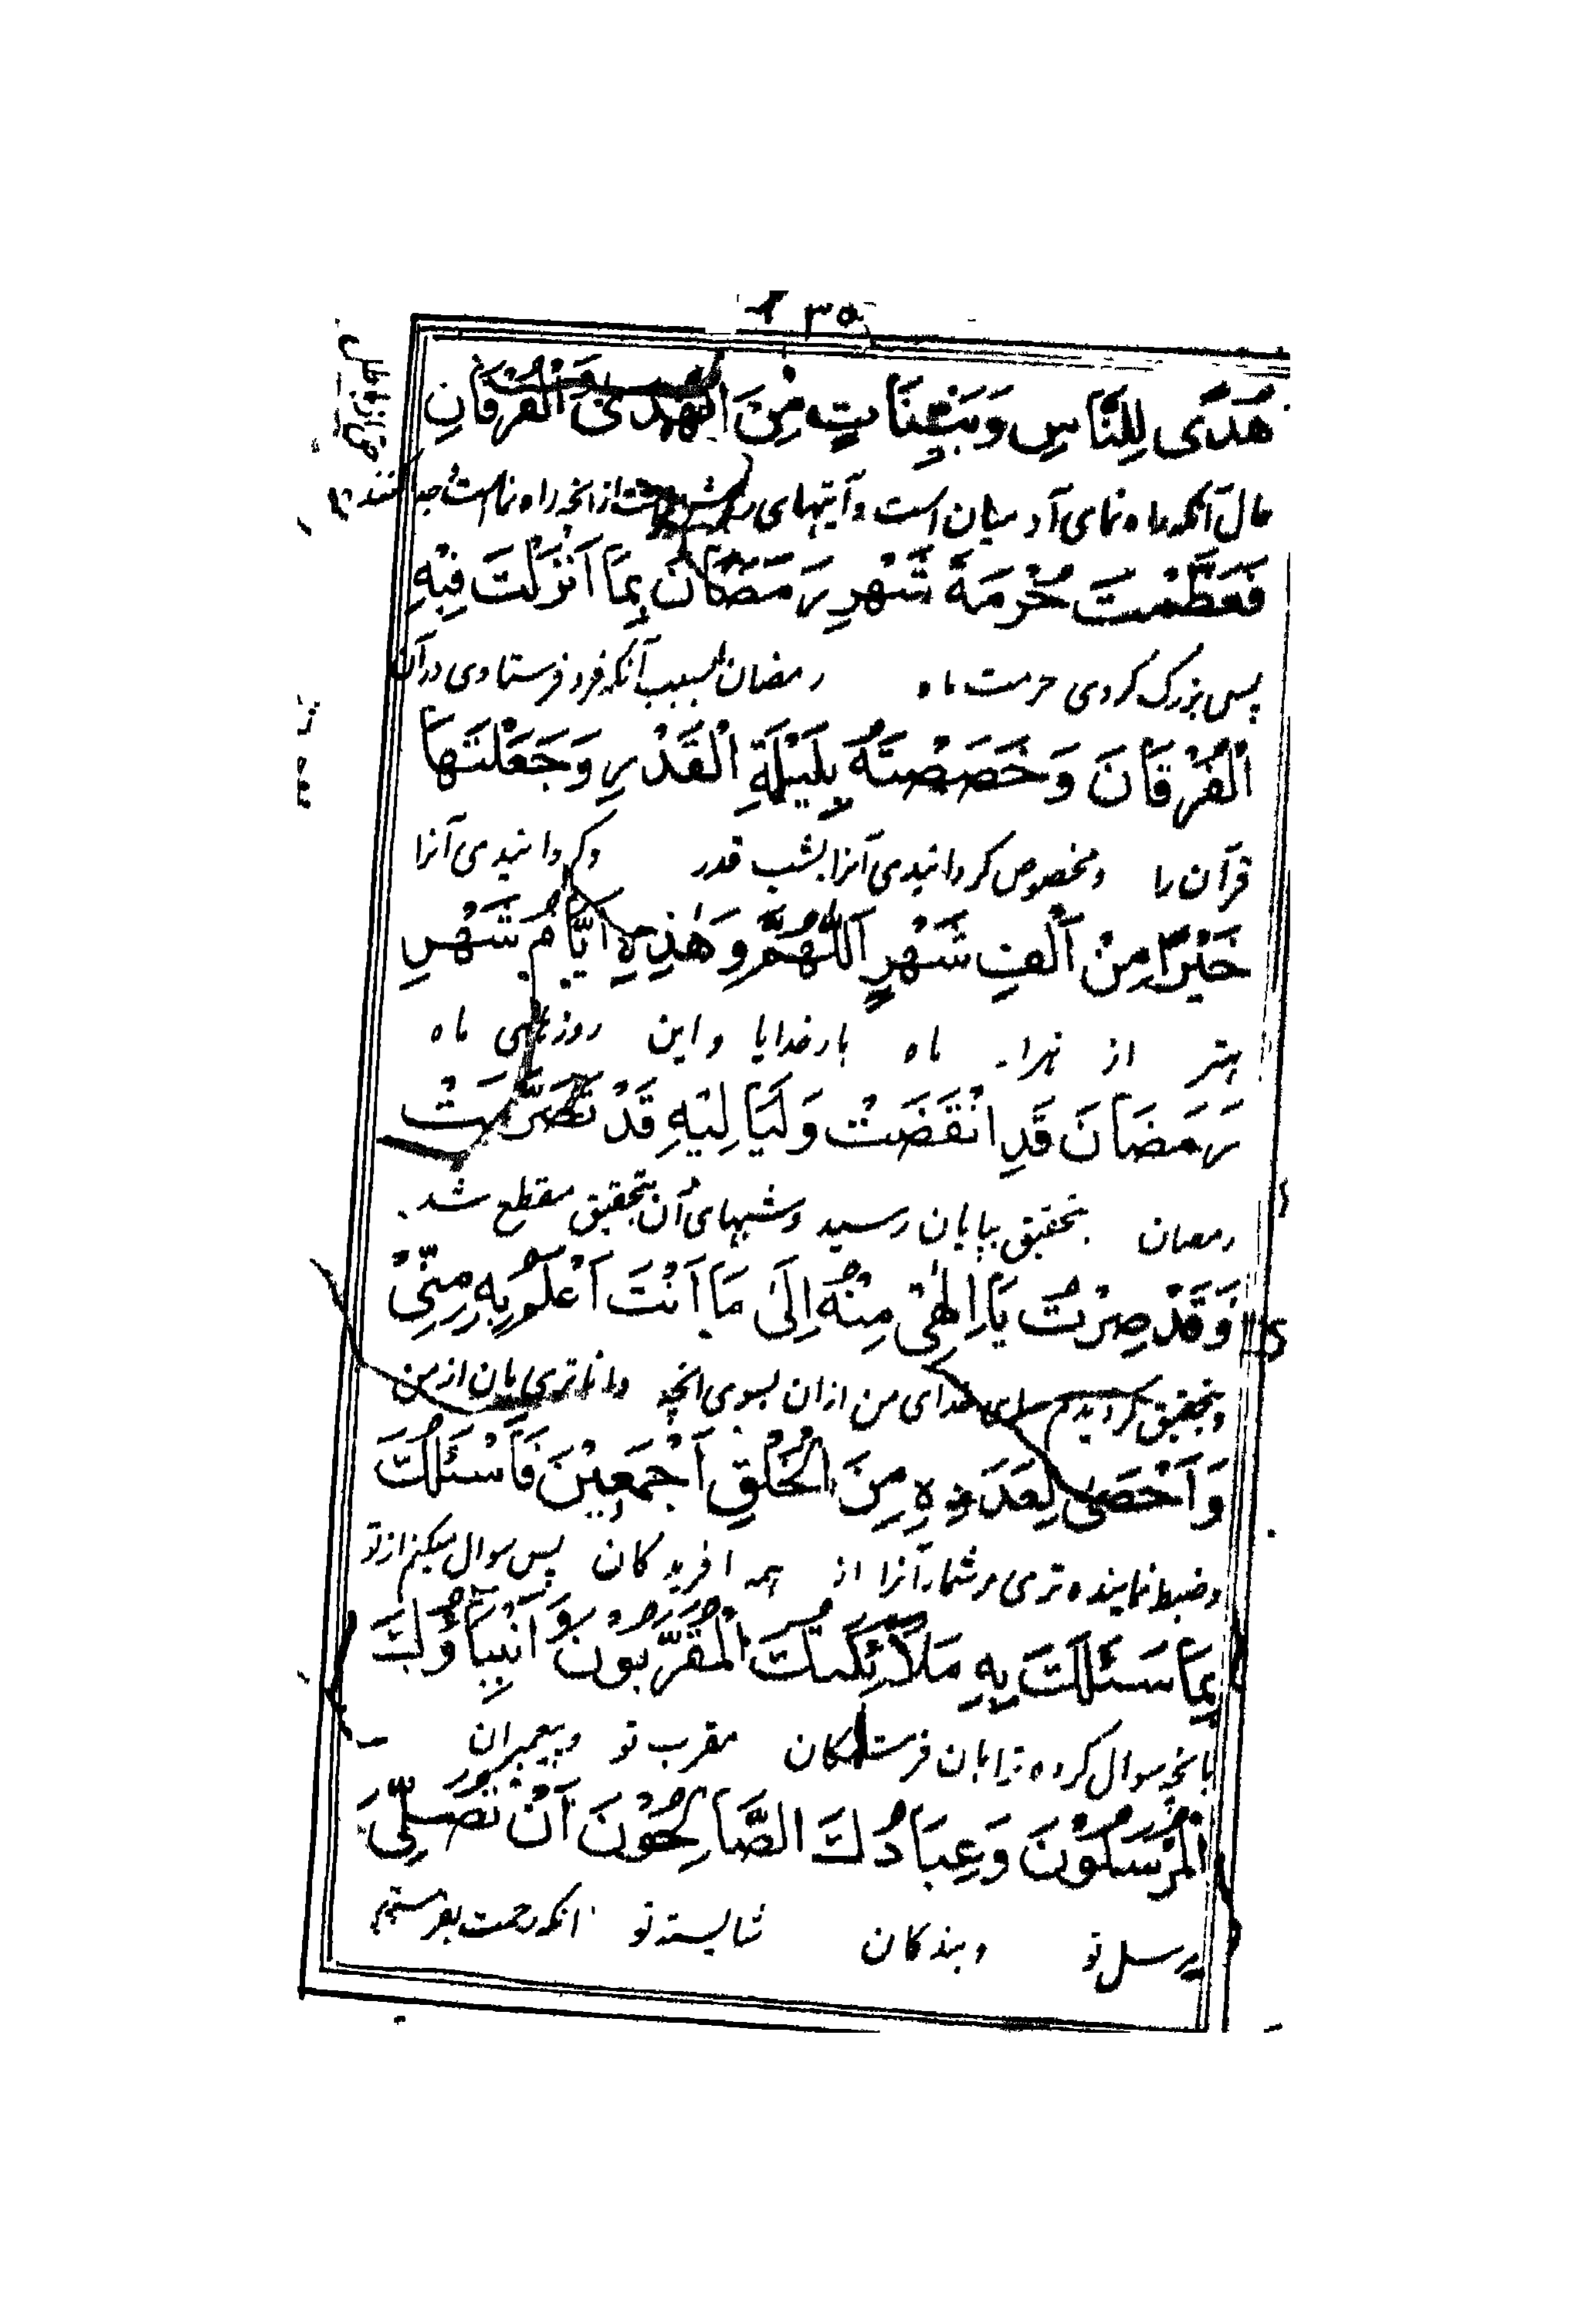 ۱۳۵
هُدًى لِلنَّاسِ وَبَيِّنَاتٍ مِنَ الْهُدٰى وَالْفُرْقَانِ
حال آنکه راه نمای آدمیان است و آیتهای روشن است از انچه راه نماست
فَعَظَّمْتَ حُرْمَةَ شَهْرِ رَمَضَانَ بِمَا اَنْزَلْتَ فِيْهِ
پس بزرگ کردی حرمت ماه رمضان بسبب آنکه فرو فرستادی در آن
الْفُرْقَانَ وَخَصَصْتَهُ بِلَيْلَةِ الْقَدْرِ وَجَعَلْتَهَا
قرآن را و مخصوص کردانیدی آنرا بشب قدر و کردانیدی آنرا
خَيْرًا مِنْ اَلْفِ شَهْرٍ اَللّٰهُمَّ وَهٰذِهِ اَيَّامُ شَهْرِ
بهتر از هزار ماه بار خدایا و این روزهای ماه
رَمَضَانَ قَدِ انْقَضَتْ وَلَيَالِيْهِ قَدْ تَصَرَّمَتْ
رمضان بتحقیق بپایان رسید و شبهای آن بتحقیق منقطع شد
وَقَدْ صِرْتُ يَا اِلٰهِيْ مِنْهُ اِلٰى مَا اَنْتَ اَعْلَمُ بِهِ مِنِّيْ
و بتحقیق کردیدم ای خدای من ازان بسوی انچه داناتری بان از من
وَاَحْصٰى لِعَدَدِهِ مِنَ الْخَلْقِ اَجْمَعِيْنَ فَاَسْئَلُكَ
و ضبط نماینده تری مر شمار آنرا از همه افریدکان پس سوال میکنم از تو
بِمَا سَئَلَكَ بِهِ مَلَآئِكَتُكَ الْمُقَرَّبُوْنَ وَاَنْبِيَآؤُكَ
بانچه سوال کرده ترا بان فرشتکان مقرب تو و پیغمبران
الْمُرْسَلُوْنَ وَعِبَادُكَ الصَّالِحُوْنَ اَنْ تُصَلِّيَ
مرسل تو و بندکان شایسته تو انکه رحمت بفرستی